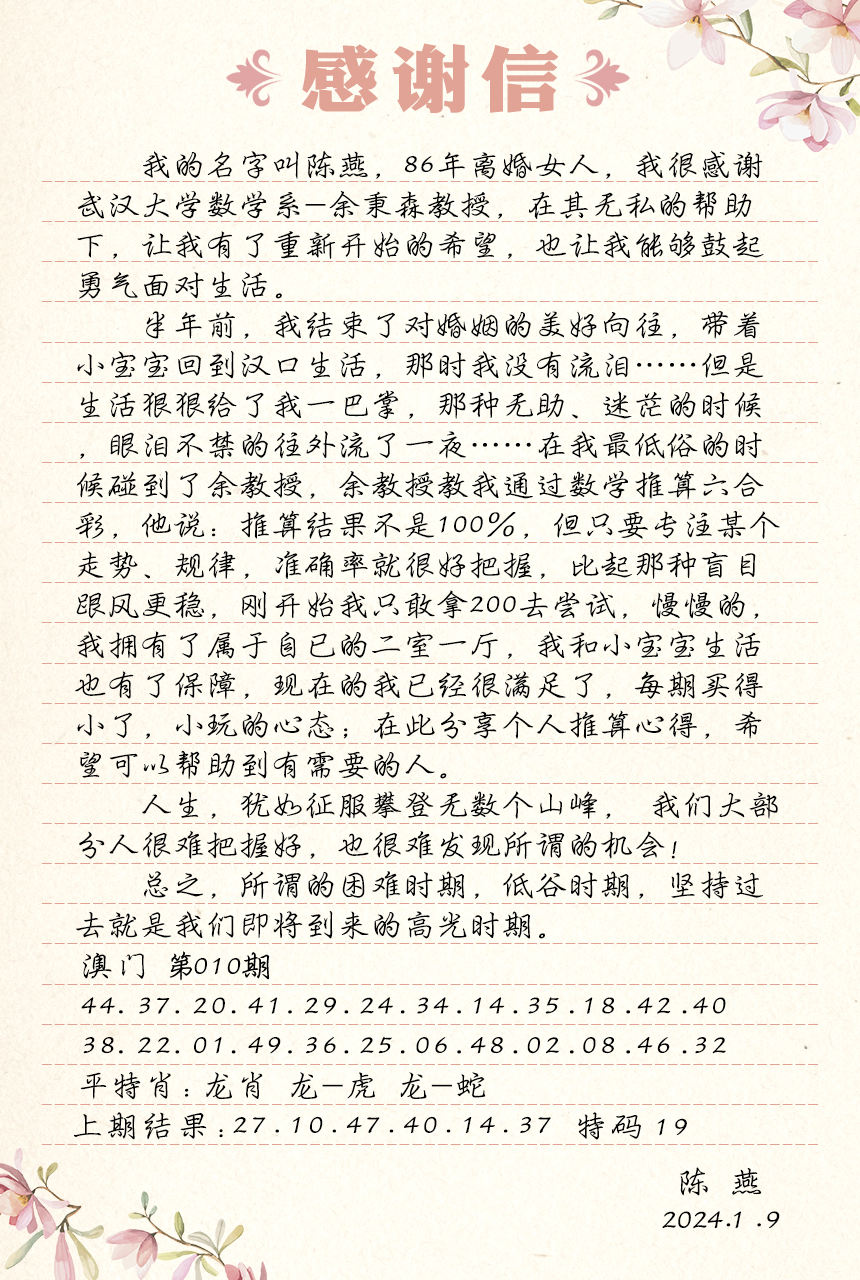 感谢信
我的名字叫陈燕，86年离婚女人，我很感谢
武汉大学数学系—余秉森教授，在其无私的帮助
下，让我有了重新开始的希望，也让我能够鼓起
勇气面对生活。
半年前，我结束了对婚姻的美好向往，带着
小宝宝回到汉口生活，那时我没有流泪……但是
生活狠狠给了我一巴掌，那种无助、迷茫的时候
，眼泪不禁的往外流了一夜……在我最低俗的时
候碰到了余教授，余教授教我通过数学推算六合
彩，他说：推算结果不是100%，但只要专注某个
走势、规律，准确率就很好把握，比起那种盲目
跟风更稳，刚开始我只敢拿200去尝试，慢慢的，
我拥有了属于自已的二室一厅，我和小宝宝生活
也有了保障，现在的我已经很满足了，每期买得
小了，小玩的心态；在此分享个人推算心得，希
望可以帮助到有需要的人。
人生，犹如征服攀登无数个山峰， 我们大部
分人很难把握好，也很难发现所谓的机会！
总之，所谓的困难时期，低谷时期，坚持过
去就是我们即将到来的高光时期。
澳门 第010期
44.37.20.41.29.24.34.14.35.18.42.40
38.22.01.49.36.25.06.48.02.08.46.32
平特肖：龙肖 龙—虎 龙—蛇
上期结果：27.10.47.40.14.37 特码 19
陈 燕
2024.1.9